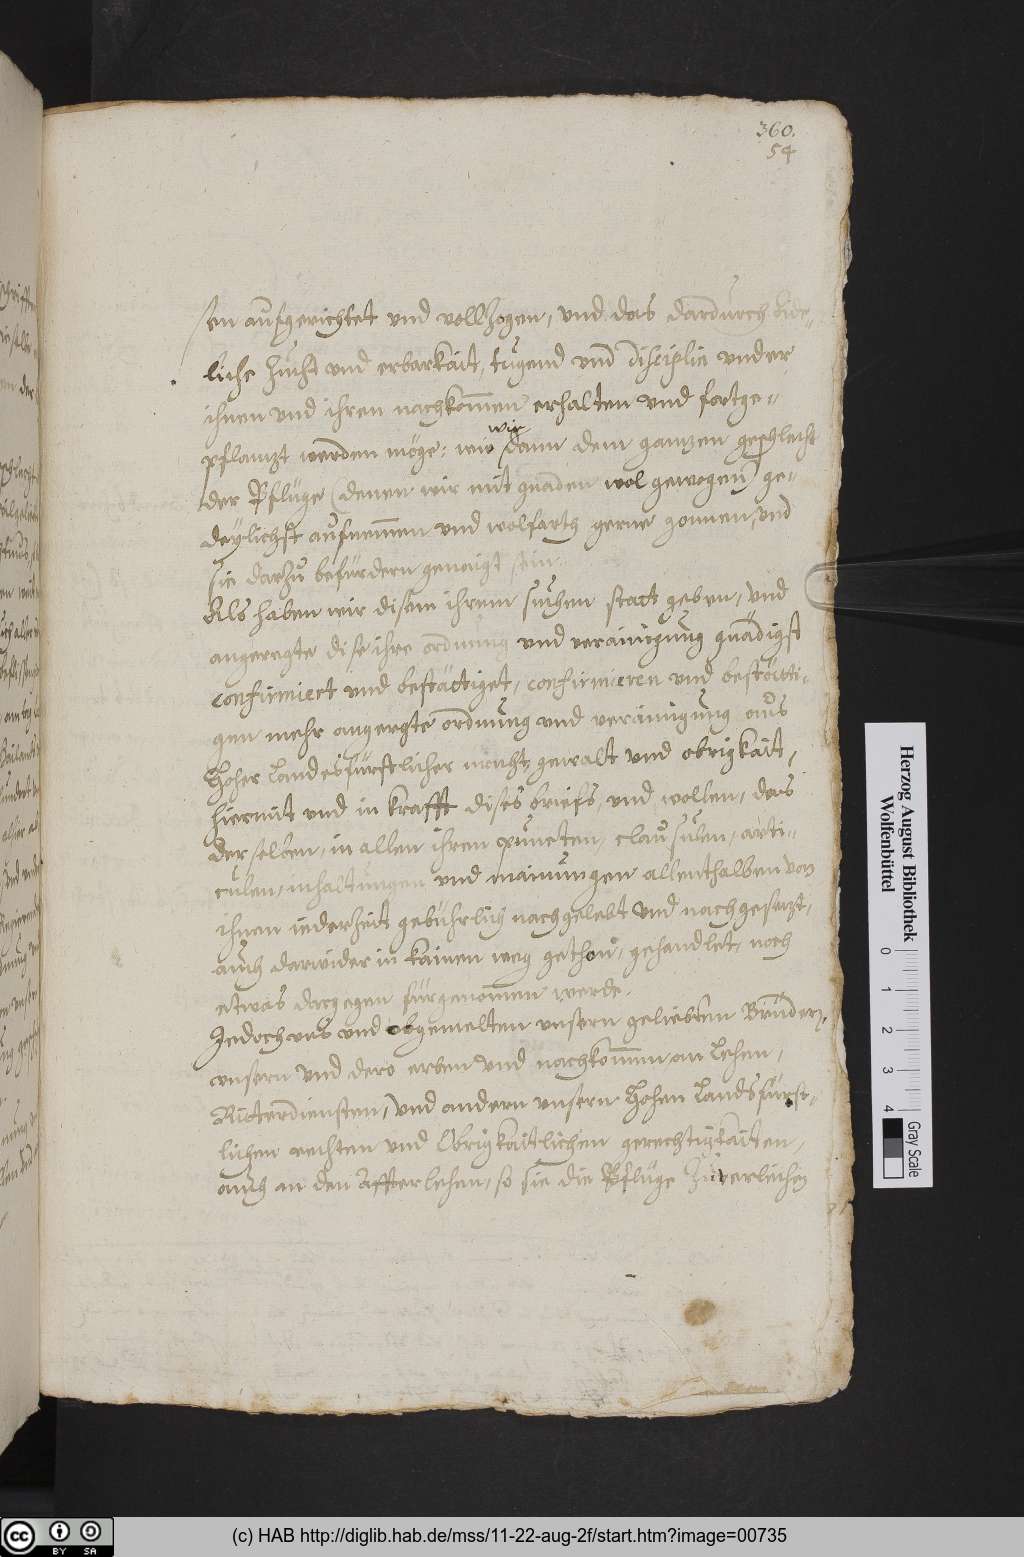 360.
54
sen aufgerichtet und vollzogen, und das dardurch Ade„
liche zucht und erbarkait, tugend und disciplin under
ihnen und ihren nachkom̄en erhalten und fortge„
pflantzt werden möge: wie wir dann dem gantzen geschlecht
der Pflüge (denen wir mit gnaden wol gewogen) ge„
deylichst aufnem̄en und wolfarth gerne gonnen, und
sie darzu befürdern geneigt sein.
Als haben wir disem ihrem suchen statt geben, und
angeregte dise ihre ordnung und verainigung gnädigst
confirmiert und bestättiget, confirmieren und bestätti„
gen mehr angeregte ordnung und verainigung aus
Hoher Landesfürstlicher macht, gewalt und obrigkait,
hiermit und in krafft dises briefs, und wollen, das
derselben, in allen ihren puncten, clausulen, arti„
culen, inhaltungen und mainungen allenthalben von
ihnen iederzeit gebührlich nachgelebt und nachgesetzt,
auch darwider in kainen weg gethon, gehandlet, noch
etwas dargegen fürgenom̄en werde.
Jedoch uns und obgemelten unsern geliebten Brüdern,
unsern und dero erben und nachkom̄en an Lehen,
Ritterdiensten, und andern unsern Hohen Landsfürst„
lichen rechten und Obrigkaitlichen gerechtigkaiten,
auch an den Affterlehen, so sie die Pflüge zu verleihen
Herzog August Bibliothek
Wolfenbüttel
0 1 2 3 4
Gray Scale
cc BY SA
(c) HAB http://diglib.hab.de/mss/11-22-aug-2f/start.htm?image=00735